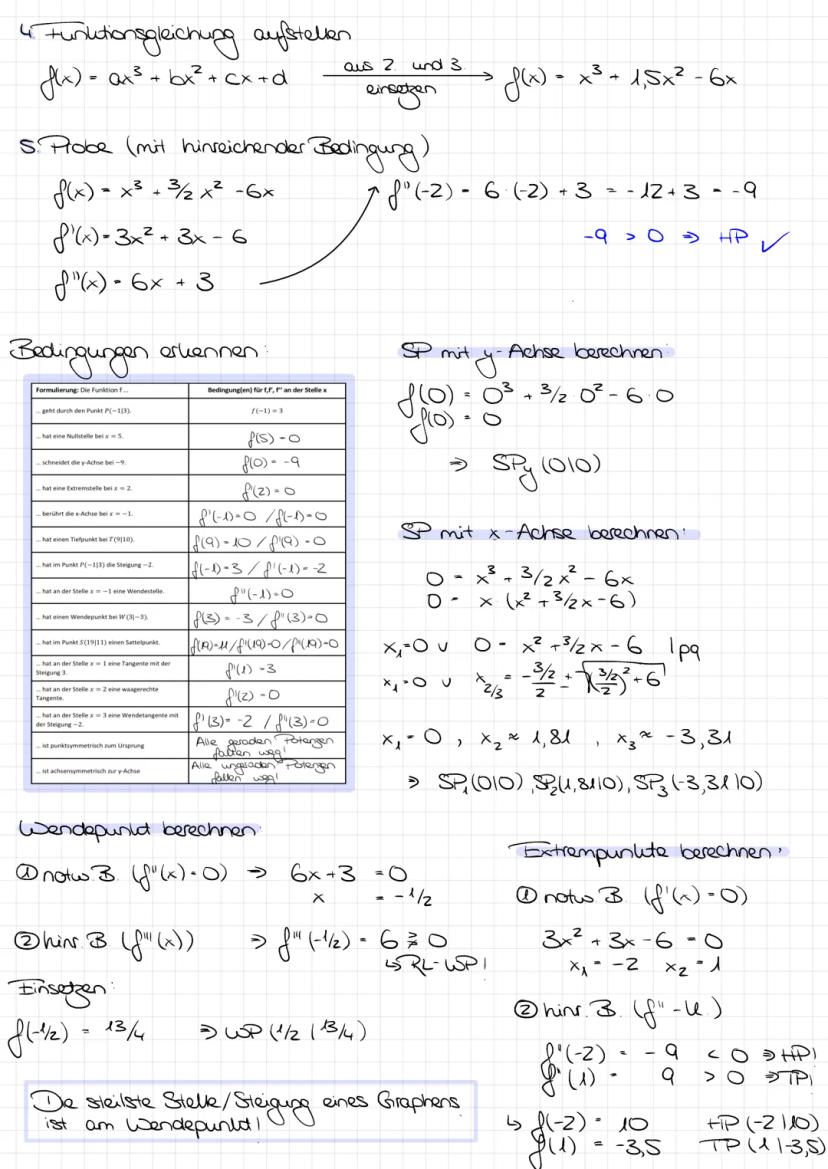 4. Funktionsgleichung aufstellen
f(x) = ax³ + bx² + cx + d aus 2. und 3. einsetzen → f(x) = x³ + 1,5x² - 6x
5. Probe (mit hinreichender Bedingung)
f(x) = x³ + 3/2 x² - 6x
f'(x) = 3x² + 3x - 6
f''(x) = 6x + 3
f''(-2) = 6·(-2) + 3 = -12 + 3 = -9
-9 > 0 ⇒ HP ✓
Bedingungen erkennen:
Formulierung: Die Funktion f ... Bedingung(en) für f,f', f'' an der Stelle x
... geht durch den Punkt P(−1|3). f(−1) = 3
... hat eine Nullstelle bei x = 5. f(5) = 0
... schneidet die y-Achse bei −9. f(0) = -9
... hat eine Extremstelle bei x = 2. f'(2) = 0
... berührt die x-Achse bei x = −1. f'(-1)=0 / f(-1)=0
... hat einen Tiefpunkt bei T(9|10). f(9) = 10 / f'(9) = 0
... hat im Punkt P(−1|3) die Steigung −2. f(-1) = 3 / f'(-1) = -2
... hat an der Stelle x = −1 eine Wendestelle. f''(-1) = 0
... hat einen Wendepunkt bei W(3|−3). f(3) = -3 / f''(3) = 0
... hat im Punkt S(19|11) einen Sattelpunkt. f(19)=11/f'(19)=0/f''(19)=0
... hat an der Stelle x = 1 eine Tangente mit der
Steigung 3. f'(1) = 3
... hat an der Stelle x = 2 eine waagerechte
Tangente. f'(2) = 0
... hat an der Stelle x = 3 eine Wendetangente mit
der Steigung −2. f'(3) = -2 / f''(3) = 0
... ist punktsymmetrisch zum Ursprung Alle geraden Potenzen
fallen weg!
... ist achsensymmetrisch zur y-Achse Alle ungeraden Potenzen
fallen weg!
SP mit y-Achse berechnen:
f(0) = 0³ + 3/2 0² - 6·0
f(0) = 0
⇒ SPy (0|0)
SP mit x-Achse berechnen:
0 = x³ + 3/2 x² - 6x
0 = x·(x² + 3/2x - 6)
x₁=0 ∨ 0 = x² + 3/2 x - 6 | pq
x₁=0 ∨ x₂/₃ = -(3/2)/2 ± √((3/2)/2)² + 6
x₁ = 0 , x₂ ≈ 1,81 , x₃ ≈ -3,31
⇒ SP₁(0|0), SP₂(1,81|0), SP₃(-3,31|0)
Wendepunkt berechnen:
① notw. B. (f''(x) = 0) ⇒ 6x + 3 = 0
x = -1/2
② hinr. B (f'''(x)) ⇒ f'''(-1/2) = 6 ≷ 0
↳ RL-WP!
Einsetzen:
f(-1/2) = 13/4 ⇒ WP (1/2 | 13/4)
Die steilste Stelle/Steigung eines Graphens
ist am Wendepunkt!
Extrempunkte berechnen:
① notw. B. (f'(x) = 0)
3x² + 3x - 6 = 0
x₁ = -2 x₂ = 1
② hinr. B. (f''-K.)
f''(-2) = -9 < 0 ⇒ HP!
f''(1) = 9 > 0 ⇒ TP!
↳ f(-2) = 10 HP (-2|10)
f(1) = -3,5 TP (1|-3,5)